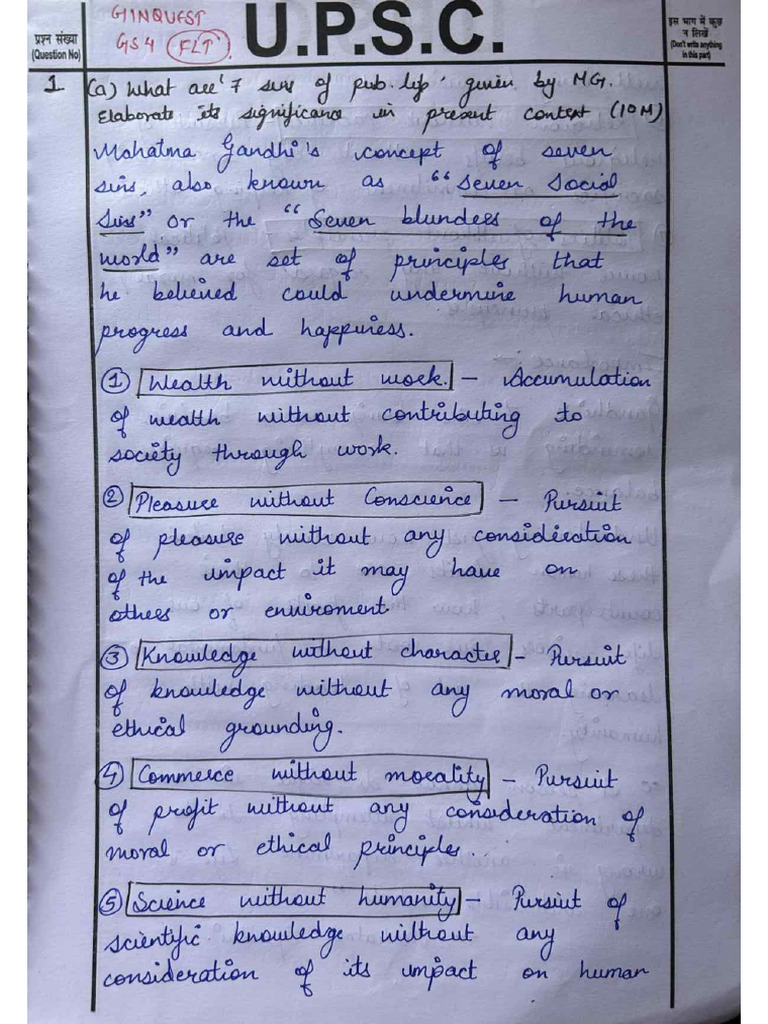 GINQUEST
GS4 (FLT).
U.P.S.C.
प्रश्न संख्या
(Question No)
इस भाग में कुछ
न लिखें
(Don't write anything
in this part)
1 (a) What are '7 sins of pub. life' given by MG.
Elaborate its significance in present context (10M)
Mahatma Gandhi's concept of seven
sins, also known as "Seven Social
Sins" or the "Seven blunders of the
world" are set of principles that
he believed could undermine human
progress and happiness.
① Wealth without work. – Accumulation
of wealth without contributing to
society through work.
② Pleasure without Conscience – Pursuit
of pleasure without any consideration
of the impact it may have on
others or enviroment.
③ Knowledge without character – Pursuit
of knowledge without any moral or
ethical grounding.
④ Commerce without morality – Pursuit
of profit without any consideration of
moral or ethical principles.
⑤ Science without humanity – Pursuit of
scientific knowledge without any
consideration of its impact on human